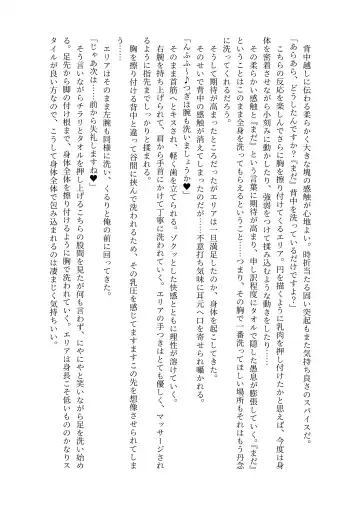 背中越しに伝わる柔らかく大きな塊の感触が心地よい。時折当たる固い突起もまた気持ち良さのスパイスだ。
「あらあら、どうしたんですか？『まだ』背中を洗っているだけですよ？」
　こちらの反応を楽しむようにさらに胸を擦り付けてくるエリア。円を描くように乳肉を押し付けたかと思えば、今度は身
体を密着させながら小刻みに動かしたり、強弱をつけて揉み込むような動きをしたり……
　その柔らかい感触と『まだ』という言葉に期待が高まり、申し訳程度にタオルで隠した愚息が膨張していく。『まだ』
ということはこのまま全身を洗ってもらえるということ……つまり、その胸で一番洗ってほしい場所もそれはもう丹念
に洗ってくれるだろう。
　そうして期待が高まったところだったがエリアは一旦満足したのか、身体を起こしてきた。
　そのせいで背中の感触が消えてしまったのだが……不意打ち気味に耳元へ口を寄せられ囁かれる。
「んふふ〜♪つぎは腕も洗いましょうか♥」
　そのまま首筋へとキスされ、軽く歯を立てられる。ゾクッとした快感とともに理性が溶けていく。
　右腕を持ち上げられて、肩から手首にかけて丁寧に洗われていく。エリアの手つきはとても優しく、マッサージされ
るように指先までしっかりと揉まれる。
　胸を擦り付ける背中と違って谷間に挟んで洗われるため、その乳圧を感じてますますこの先を想像させられてしま
う……
　エリアはそのまま左腕も同様に洗い、くるりと俺の前に回ってきた。
「じゃあ次は……前から失礼しますね♥」
　そう言いながらチラリとタオルを押し上げるこちらの股間を見たが何も言わず、にやにやと笑いながら足を洗い始め
る。足先から脚の付け根まで、身体全体を擦り付けるように胸で洗われていく。エリアは身長こそ低いもののかなりス
タイルが良い方なので、こうして身体全体で包み込まれるのは凄まじく気持ちいい。